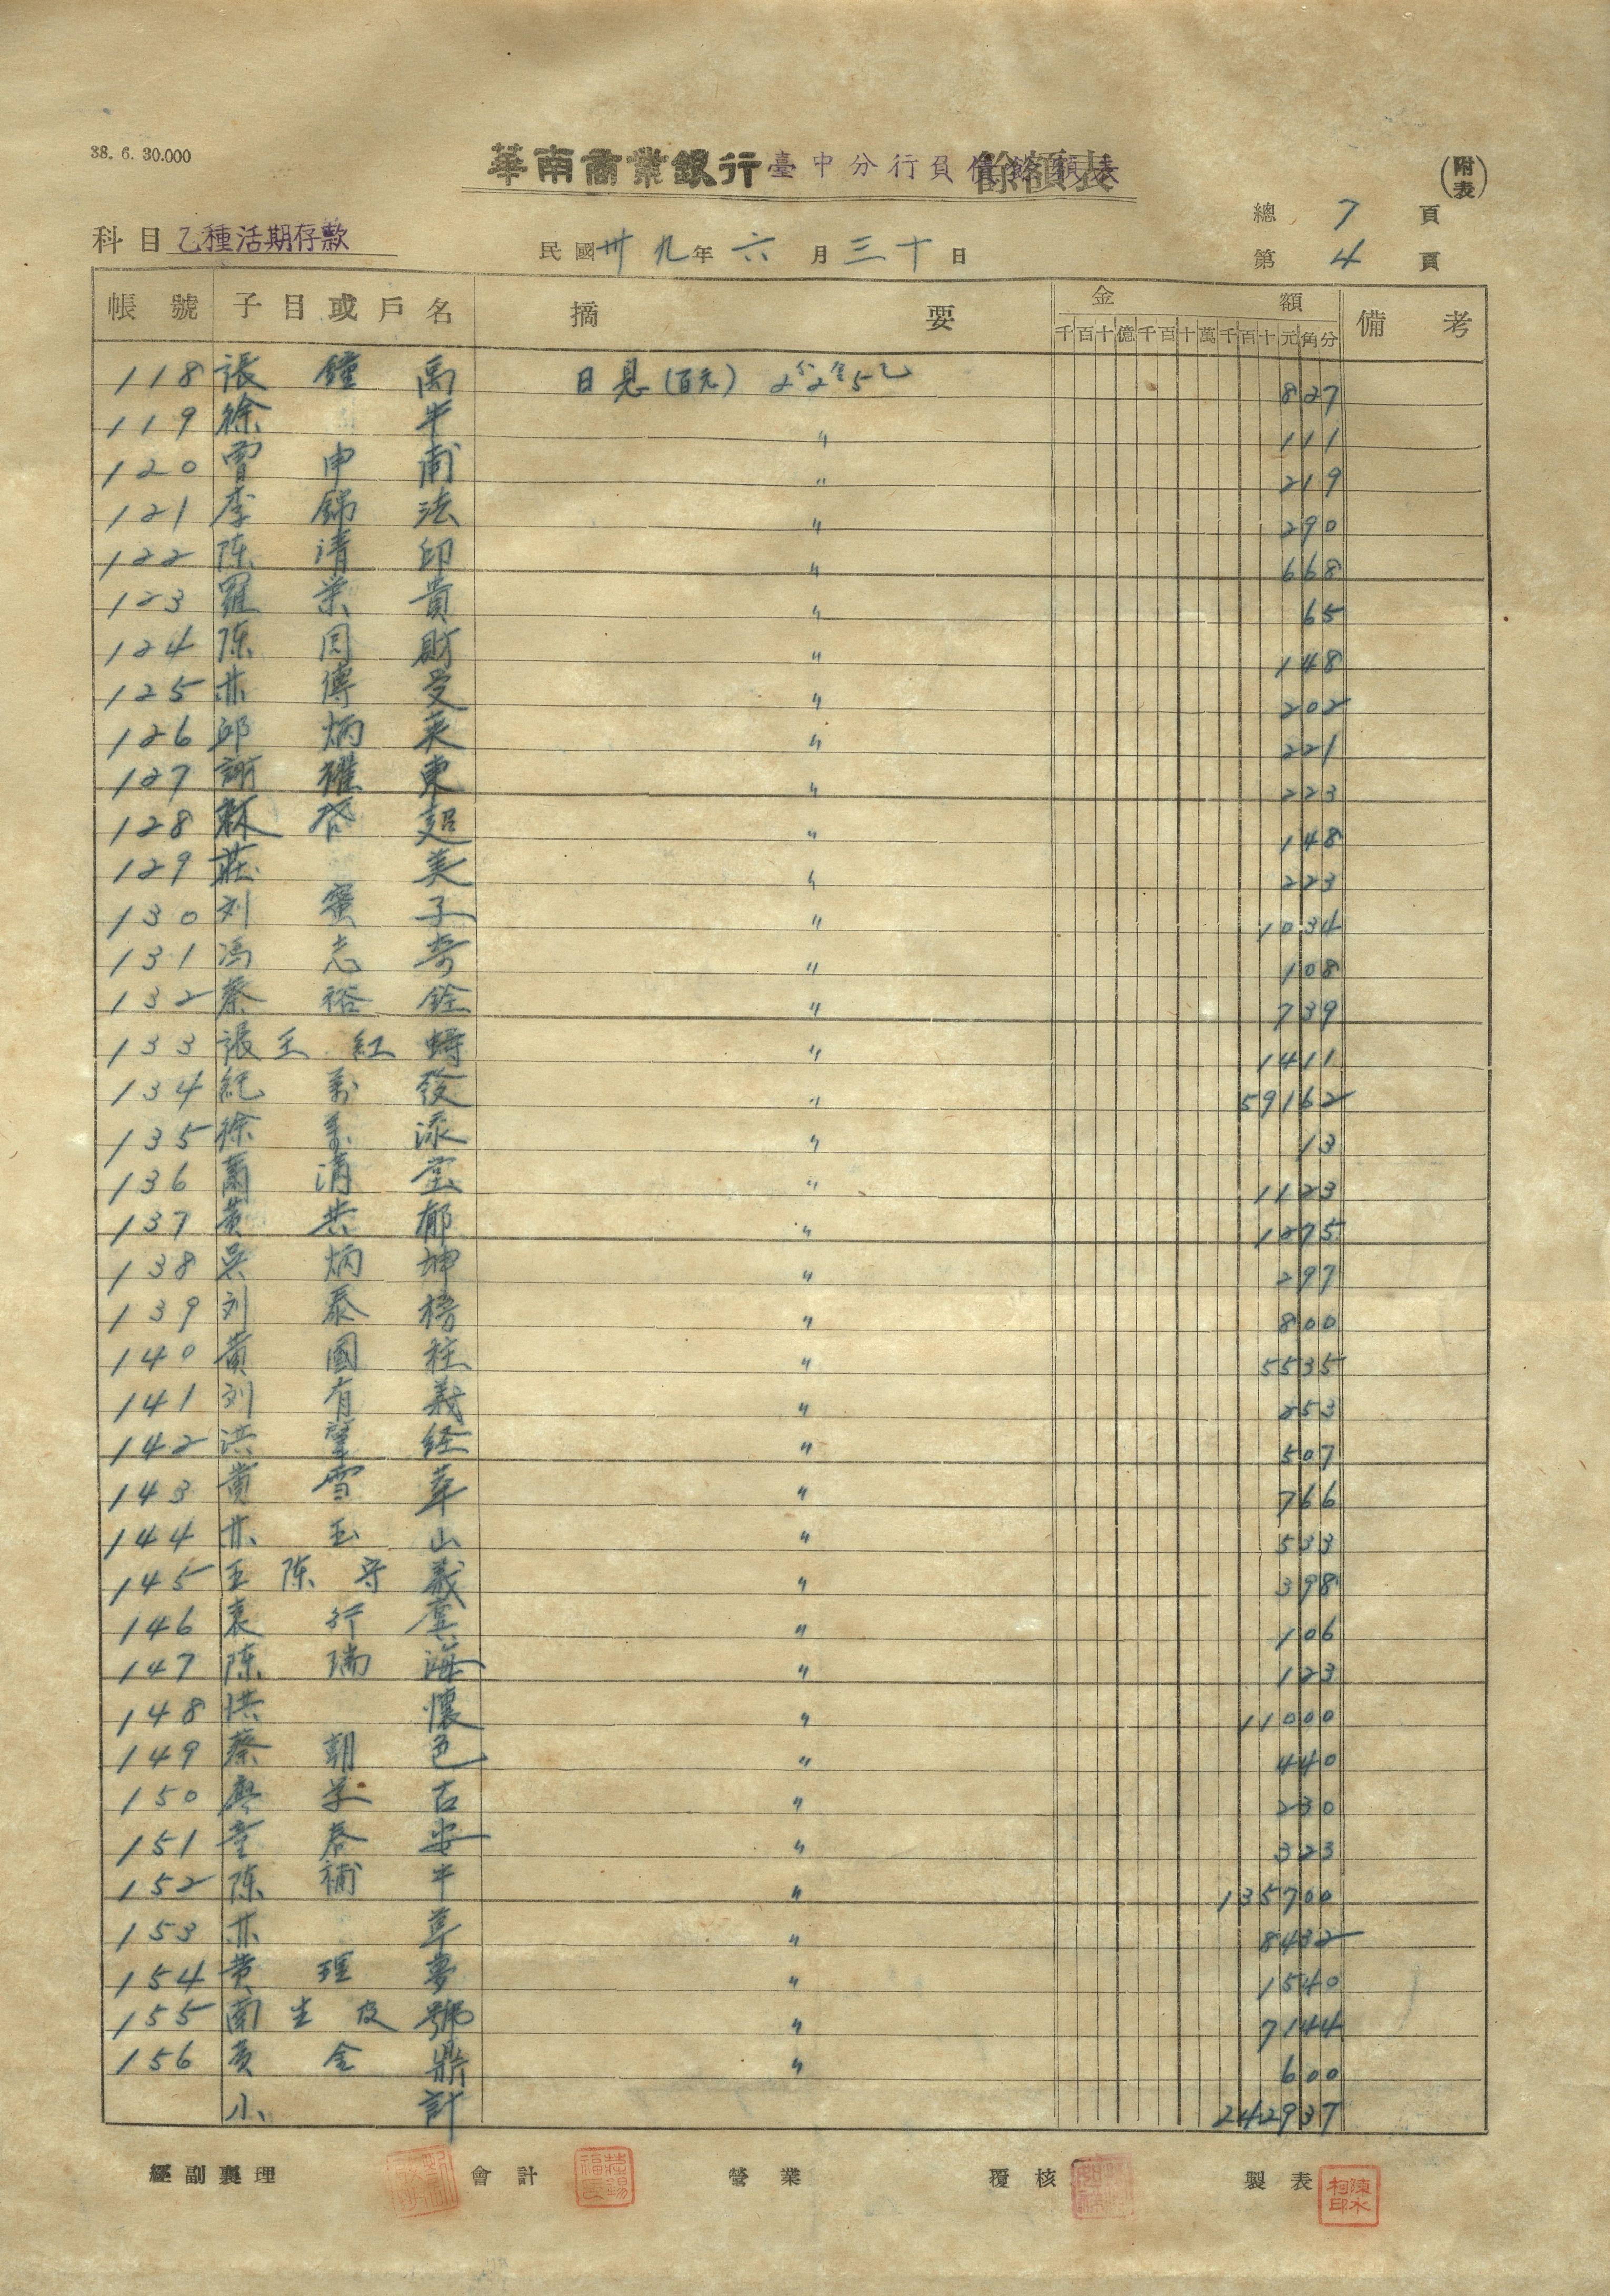 38. 6. 30.000
華南商業銀行臺中分行負債餘額表
餘額表
(附表)
總 7 頁
科目 乙種活期存款
民國卅九年六月三十日
第 4 頁
帳號 子目或戶名 摘要 金額 備考
千百十億千百十萬千百十元角分
118 張鐘禹 日息(百元) 2分2厘5毛 827
119 徐半 〃 111
120 曾申甫 〃 219
121 李錦法 〃 290
122 陈清印 〃 668
123 羅荣貴 〃 65
124 陈同財 〃 148
125 林傳受 〃 202
126 邱炳英 〃 221
127 謝耀東 〃 223
128 林啓超 〃 148
129 莊美 〃 223
130 刘蜜子 〃 1034
131 馮志奇 〃 108
132 蔡裕銓 〃 739
133 張王紅蟳 〃 1411
134 紀萬發 〃 59162
135 徐萬添 〃 13
136 蕭清宝 〃 1123
137 黄共郁 〃 1275
138 吳炳坤 〃 297
139 刘泰榜 〃 800
140 黄國柱 〃 5535
141 刘有義 〃 253
142 洪肇经 〃 507
143 黄雪華 〃 766
144 林玉山 〃 533
145 王陈守義 〃 398
146 袁行 〃 106
147 陈瑞海 〃 123
148 洪懷 〃 11000
149 蔡朝色 〃 440
150 廖学古 〃 230
151 童春安 〃 323
152 陈補平 〃 135700
153 林草 〃 8432
154 黄理夢 〃 1540
155 南生皮號 〃 7144
156 黄金鼎 〃 600
小計 242937
經副襄理 會計 營業 覆核 製表
陳水柯印